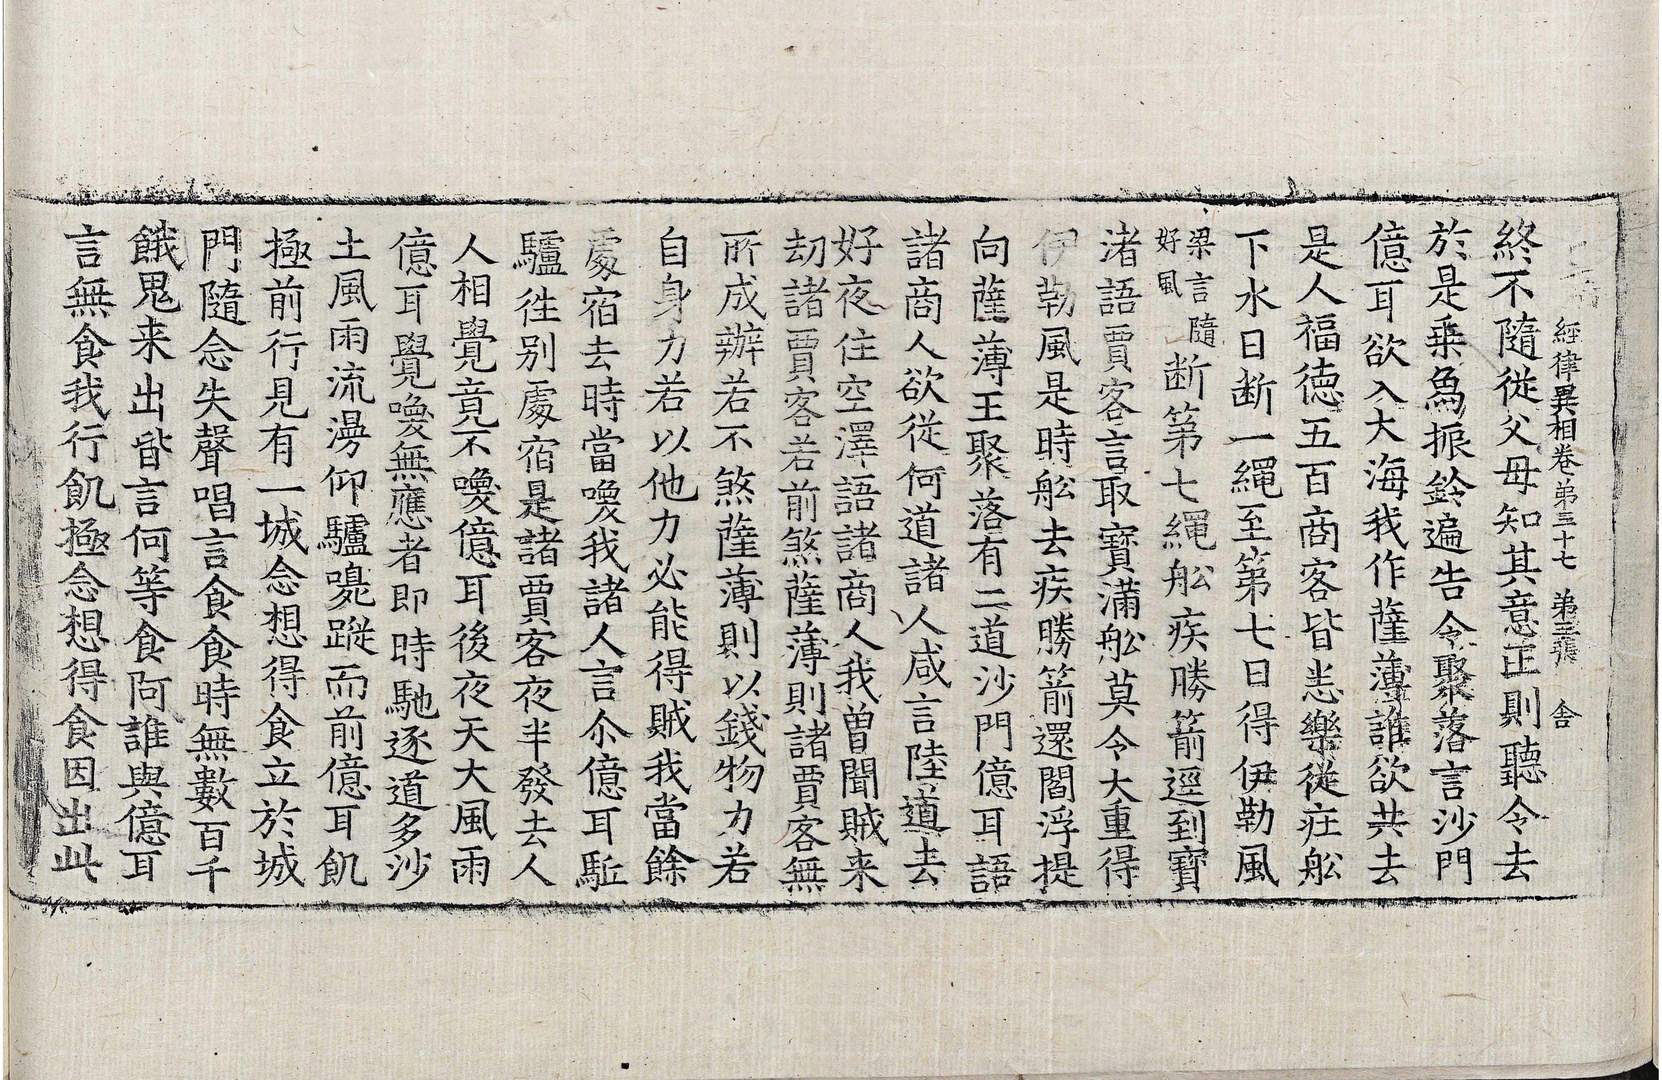 經律異相卷第三十七 第三張 舍
終不隨從父母知其意正則聽令去
於是乗爲振鈴遍告令聚落言沙門
億耳欲入大海我作薩薄誰欲共去
是人福德五百商客皆悉樂從庄舩
下水日断一繩至第七日得伊勒風
梁言隨好風断第七繩舩疾勝箭逕到寶
渚語賈客言取寶滿舩莫令大重得
伊勒風是時舩去疾勝箭還閻浮提
向薩薄王聚落有二道沙門億耳語
諸商人欲從何道諸人咸言陸道去
好夜住空澤語諸商人我曽聞賊来
劫諸賈客若前煞薩薄則諸賈客無
所成辦若不煞薩薄則以錢物力若
自身力若以他力必能得賊我當餘
處宿去時當喚我諸人言尒億耳駈
驢徃别處宿是諸賈客夜半發去人
人相覺竟不喚億耳後夜天大風雨
億耳覺喚無應者即時馳逐道多沙
土風雨流漫仰驢嗅蹤而前億耳飢
極前行見有一城念想得食立於城
門隨念失聲唱言食食時無數百千
餓鬼来出皆言何等食阿誰與億耳
言無食我行飢極念想得食因出此